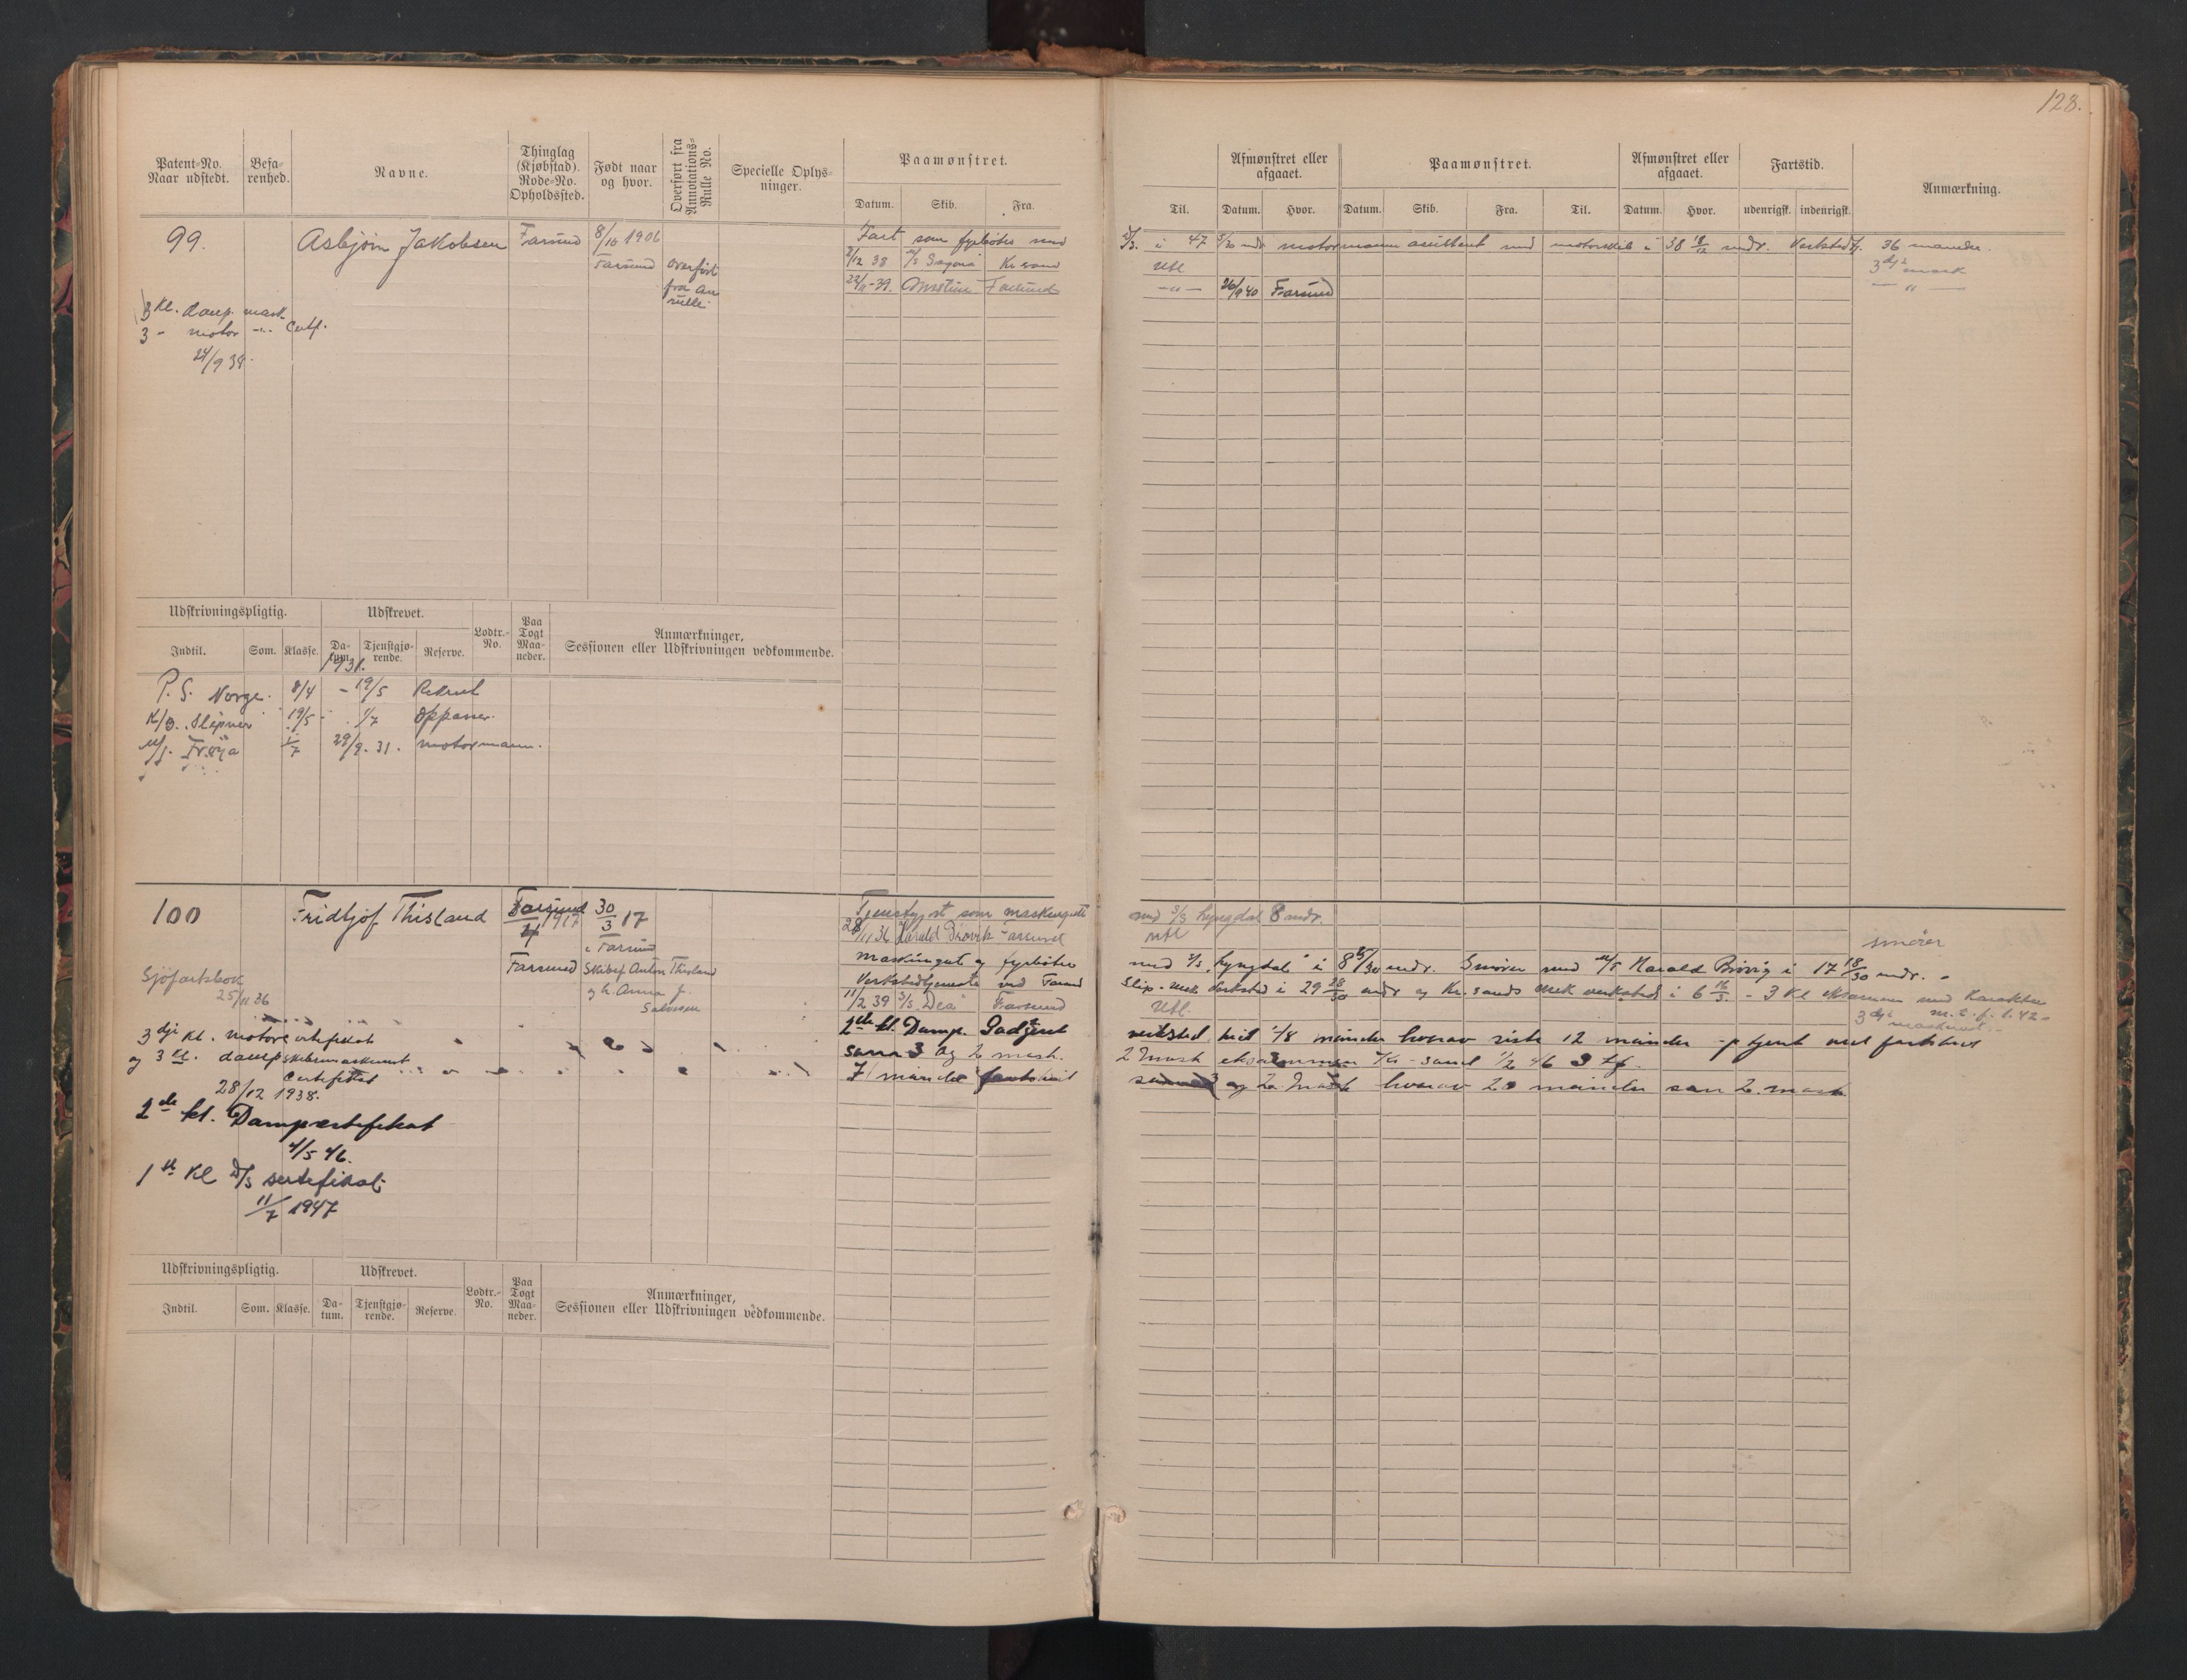 128.
Patent-No. Naar udstedt.
Befa-renhed.
Navne.
Thinglag (Kjøbstad). Rode-No. Opholdssted.
Født naar og hvor.
Overført fra Annotations-Rulle No.
Specielle Oplys-ninger.
Paamønstret.
Datum. Skib. Fra.
Til.
Afmønstret eller afgaaet.
Datum. Hvor.
Paamønstret.
Datum. Skib. Fra. Til.
Afmønstret eller afgaaet.
Datum. Hvor.
Fartstid.
udenrigsk. indenrigsk.
Anmærkning.
99.
Asbjørn Jakobsen
Farsund
8/10 1906
Farsund
overført
fra an
rulle.
3 Kl. damp. mask.
3 - motor -"- Certf.
24/9 38.
Fart som fyrbøter med
i 47 5/30 mdr motormann assistent med motorskib i 38 18/12 mdr. Verkstedtj. 36 maaneder.
/12 38 Kr sand
Utl
3dje mask
22/11-39. Farsund
-"- 26/9 40 Farsund
-"-
Udskrivningspligtig.
Udskrevet.
Lodtr.-No.
Paa Togt Maa-neder.
Anmærkninger, Sessionen eller Udskrivningen vedkommende.
Indtil. Som. Klasse. Da-tum. Tjenstgjø-rende. Reserve.
1931.
P. S. Norge. 8/4 - 19/5 Rekrut
K/B. Sleipner 19/5 - 1/7 Oppasser.
Frøya 1/7 29/9. 31. motormann.
100
Fridtjof Thisland
Farsund
4/1917
Farsund
30/3 17
i Farsund
Skibsf Anton Thisland
og h. Anna f.
Salvesen
Sjöfartsbok
25/11 36
3dje Kl. motorcertifikat
og 3 Kl. dampskibsmaskinist
Certifikat
28/12 1938.
2de kl. Dampcertifikat
4/5 46.
1ste Kl D/S sertifikat
11/7 1947
Tjenstgjort som maskingutt
med S/S Lyngdal 8 mdr.
28/11 36 Harald Brøvik Farsund
utl
smører
maskingut og fyrbøter
med S/S "Lyngdal" i 8 25/30 mdr. Smører med M/S Harald Brøvig i 17 18/30 mdr.
Verkstedtjeneste ved Farsund
Slip & Mek Verksted i 29 28/30 mdr og Kr.sands Mek verksted i 6 - 3 Kl eksamen med Karakter
11/2 39 S/S "Dea" Farsund
Utl.
3dje maskinist
2de kl. Damp.
verksted hvorav siste 12 måneder
som 3 og 2 mask.
2 Mask eksammen Kr-sand 1/2 46
7 måneder fartstid
3 og 2. Mask hvorav 20 måneder som 2. mask
Udskrivningspligtig.
Udskrevet.
Lodtr.-No.
Paa Togt Maa-neder.
Anmærkninger, Sessionen eller Udskrivningen vedkommende.
Indtil. Som. Klasse. Da-tum. Tjenstgjø-rende. Reserve.